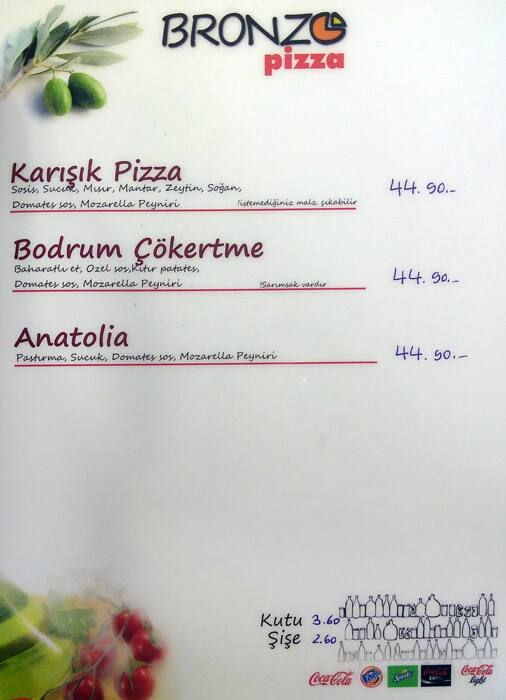 BRONZO
pizza
Karışık Pizza
Sosis, Sucuk, Mısır, Mantar, Zeytin, Soğan,
Domates sos, Mozarella Peyniri !istemediğiniz malz. çıkabilir
44.90.-
Bodrum Çökertme
Baharatlı et, Özel sos,Kıtır patates,
Domates sos, Mozarella Peyniri !Sarımsak vardır
44.90.-
Anatolia
Pastırma, Sucuk, Domates sos, Mozarella Peyniri
44.90.-
Kutu 3.60
Şişe 2.60
Coca-Cola Fanta Sprite Coca-Cola zero Coca-Cola light